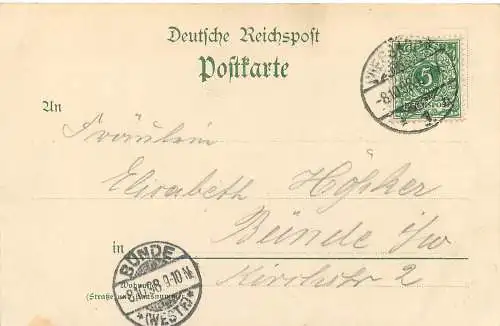 Deutsche Reichspost
Postkarte
5
An
Fräulein
Elisabeth Höpker
Bünde i/w
in
Kirchstr 2
BÜNDE
8.10.98. 9-10 N.
*(WESTF)*
Wohnung
(Straße und Hausnummer)